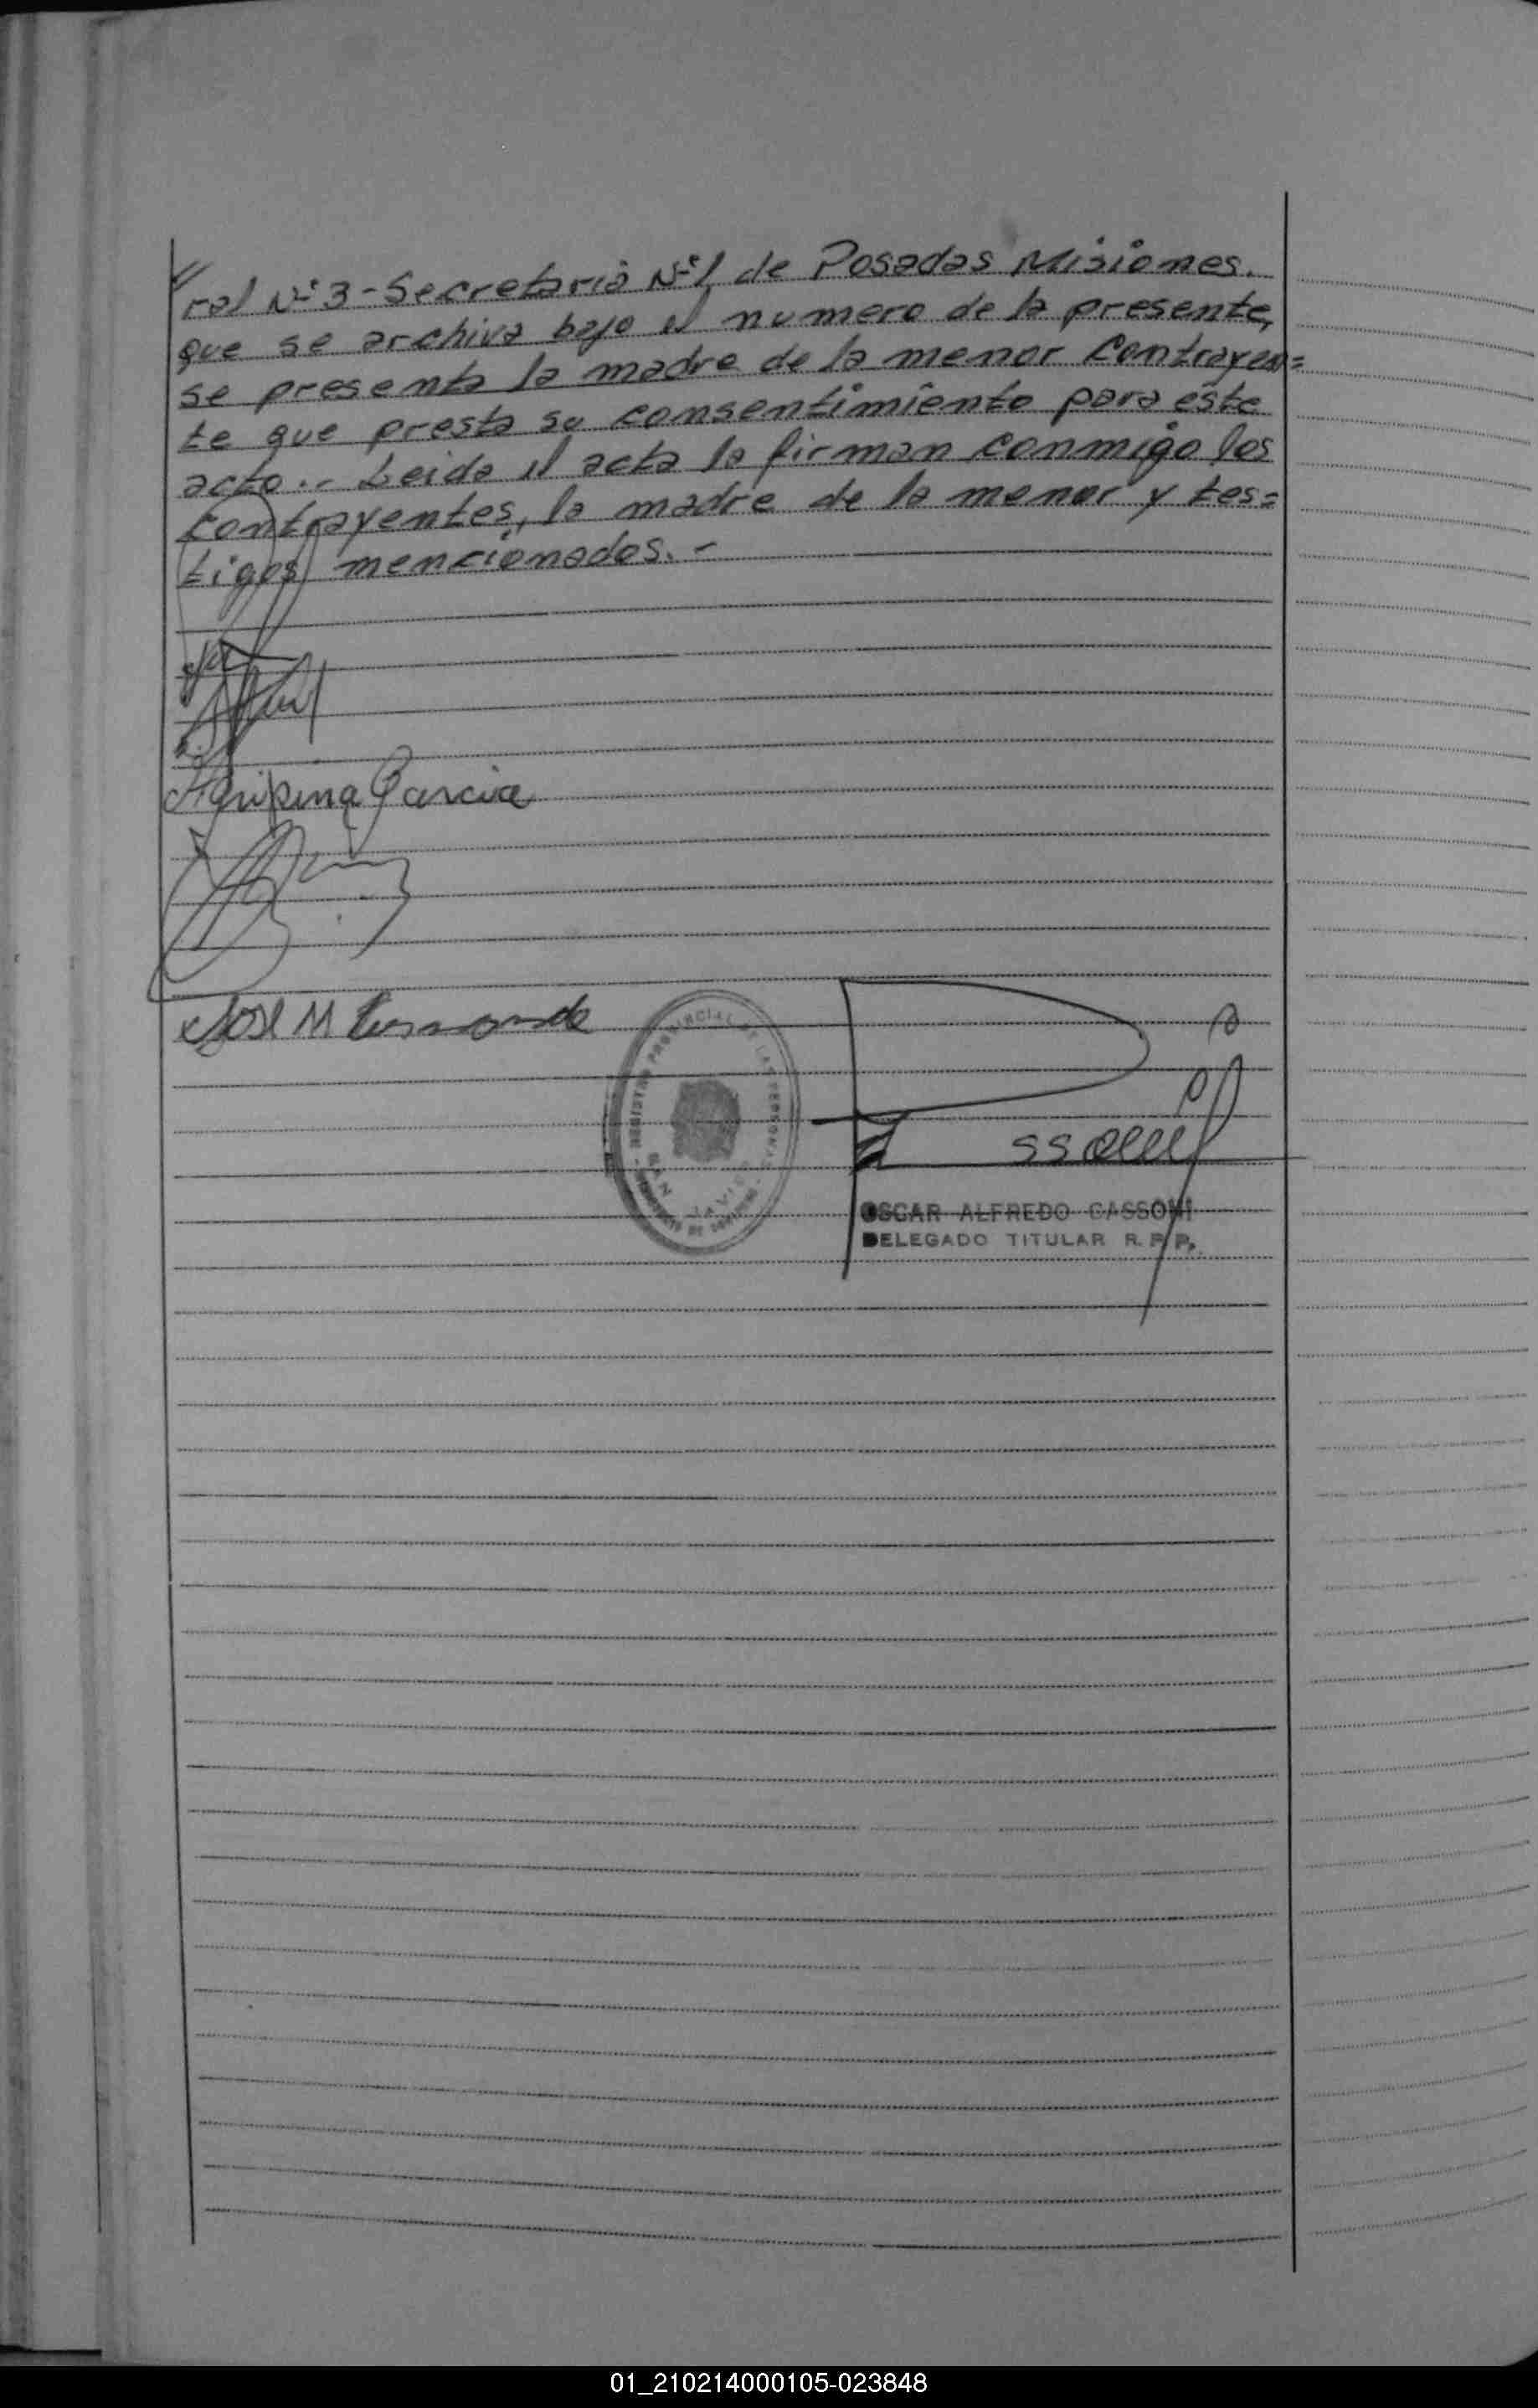 ral Nº 3 - Secretaria Nº 1, de Posadas Misiones.
que se archiva bajo el numero de la presente,
se presenta la madre de la menor contrayen=
te que presta su consentimiento para este
acto.. Leida el acta la firman conmigo los
contrayentes, la madre de la menor y tes=
tigos mencionados. -
Agripina Garcia
Jose M
REGISTRO PROVINCIAL DE LAS PERSONAS
SAN JAVIER
OSCAR ALFREDO CASSONI
DELEGADO TITULAR R. P. P.
01_210214000105-023848